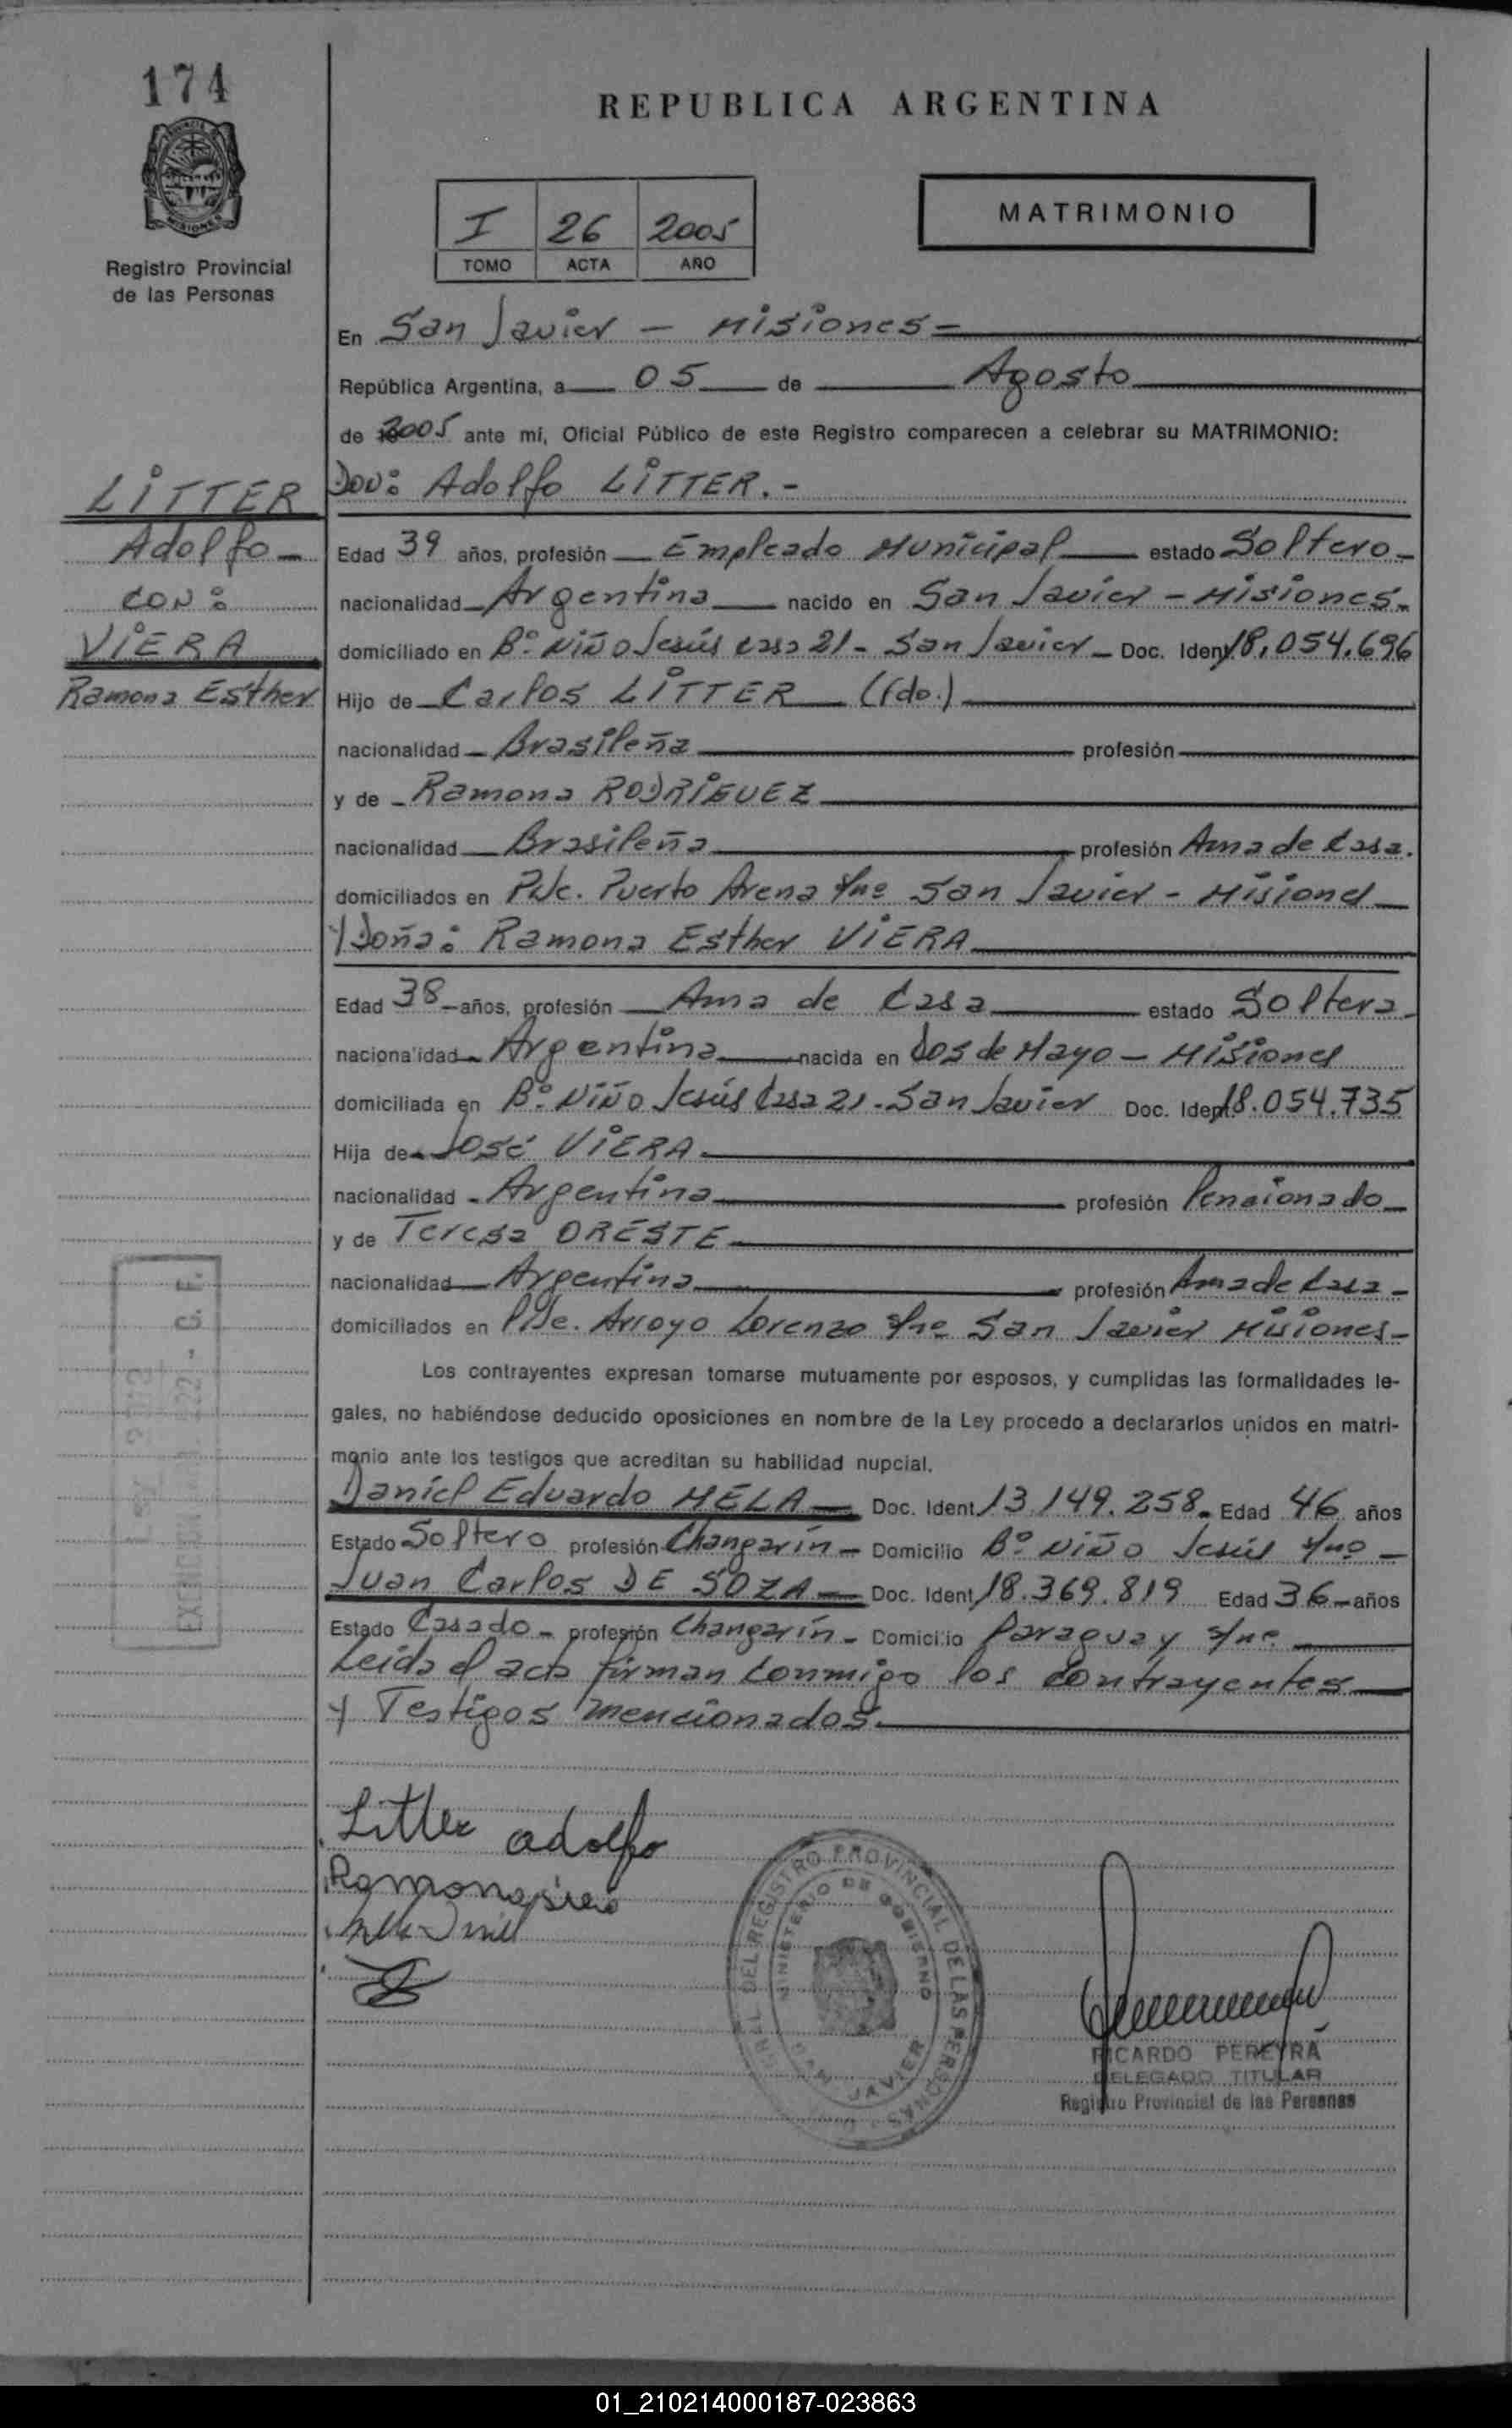 174
REPUBLICA ARGENTINA
I 26 2005
TOMO ACTA AÑO
MATRIMONIO
Registro Provincial
de las Personas
En San Javier - Misiones -
República Argentina, a 05 de Agosto
de 2005 ante mí, Oficial Público de este Registro comparecen a celebrar su MATRIMONIO:
LITTER
Adolfo -
CON:
VIERA
Ramona Esther
DON: Adolfo LITTER. -
Edad 39 años, profesión Empleado Municipal estado Soltero -
nacionalidad Argentina nacido en San Javier - Misiones.
domiciliado en Bº. Niño Jesús casa 21 - San Javier - Doc. Ident. 18.054.696
Hijo de Carlos LITTER (fdo.)
nacionalidad Brasileña profesión
y de Ramona RODRIGUEZ
nacionalidad Brasileña profesión Ama de Casa.
domiciliados en Pje. Puerto Arena s/nº San Javier - Misiones
Y Doña: Ramona Esther VIERA
Edad 38 años, profesión Ama de Casa estado Soltera
nacionalidad Argentina nacida en Dos de Mayo - Misiones
domiciliada en Bº. Niño Jesús Casa 21 - San Javier Doc. Ident. 18.054.735
Hija de José VIERA
nacionalidad Argentina profesión Pensionado
y de Teresa ORESTE
nacionalidad Argentina profesión Ama de Casa -
domiciliados en Pje. Arroyo Lorenzo s/nº San Javier Misiones -
Los contrayentes expresan tomarse mutuamente por esposos, y cumplidas las formalidades le-
gales, no habiéndose deducido oposiciones en nombre de la Ley procedo a declararlos unidos en matri-
monio ante los testigos que acreditan su habilidad nupcial.
Daniel Eduardo MELA Doc. Ident. 13.149.258 - Edad 46 años
Estado Soltero profesión Changarín - Domicilio Bº Niño Jesús s/nº -
Juan Carlos DE SOZA Doc. Ident. 18.369.819 Edad 36 años
Estado Casado - profesión Changarín - Domicilio Paraguay s/nº.
Leida el acta firman conmigo los contrayentes
y Testigos mencionados.
Litter adolfo
Ramona
REGISTRO PROVINCIAL DE LAS PERSONAS
MINISTERIO DE GOBIERNO
SAN JAVIER
RICARDO PEREYRA
DELEGADO TITULAR
Registro Provincial de las Personas
01_210214000187-023863